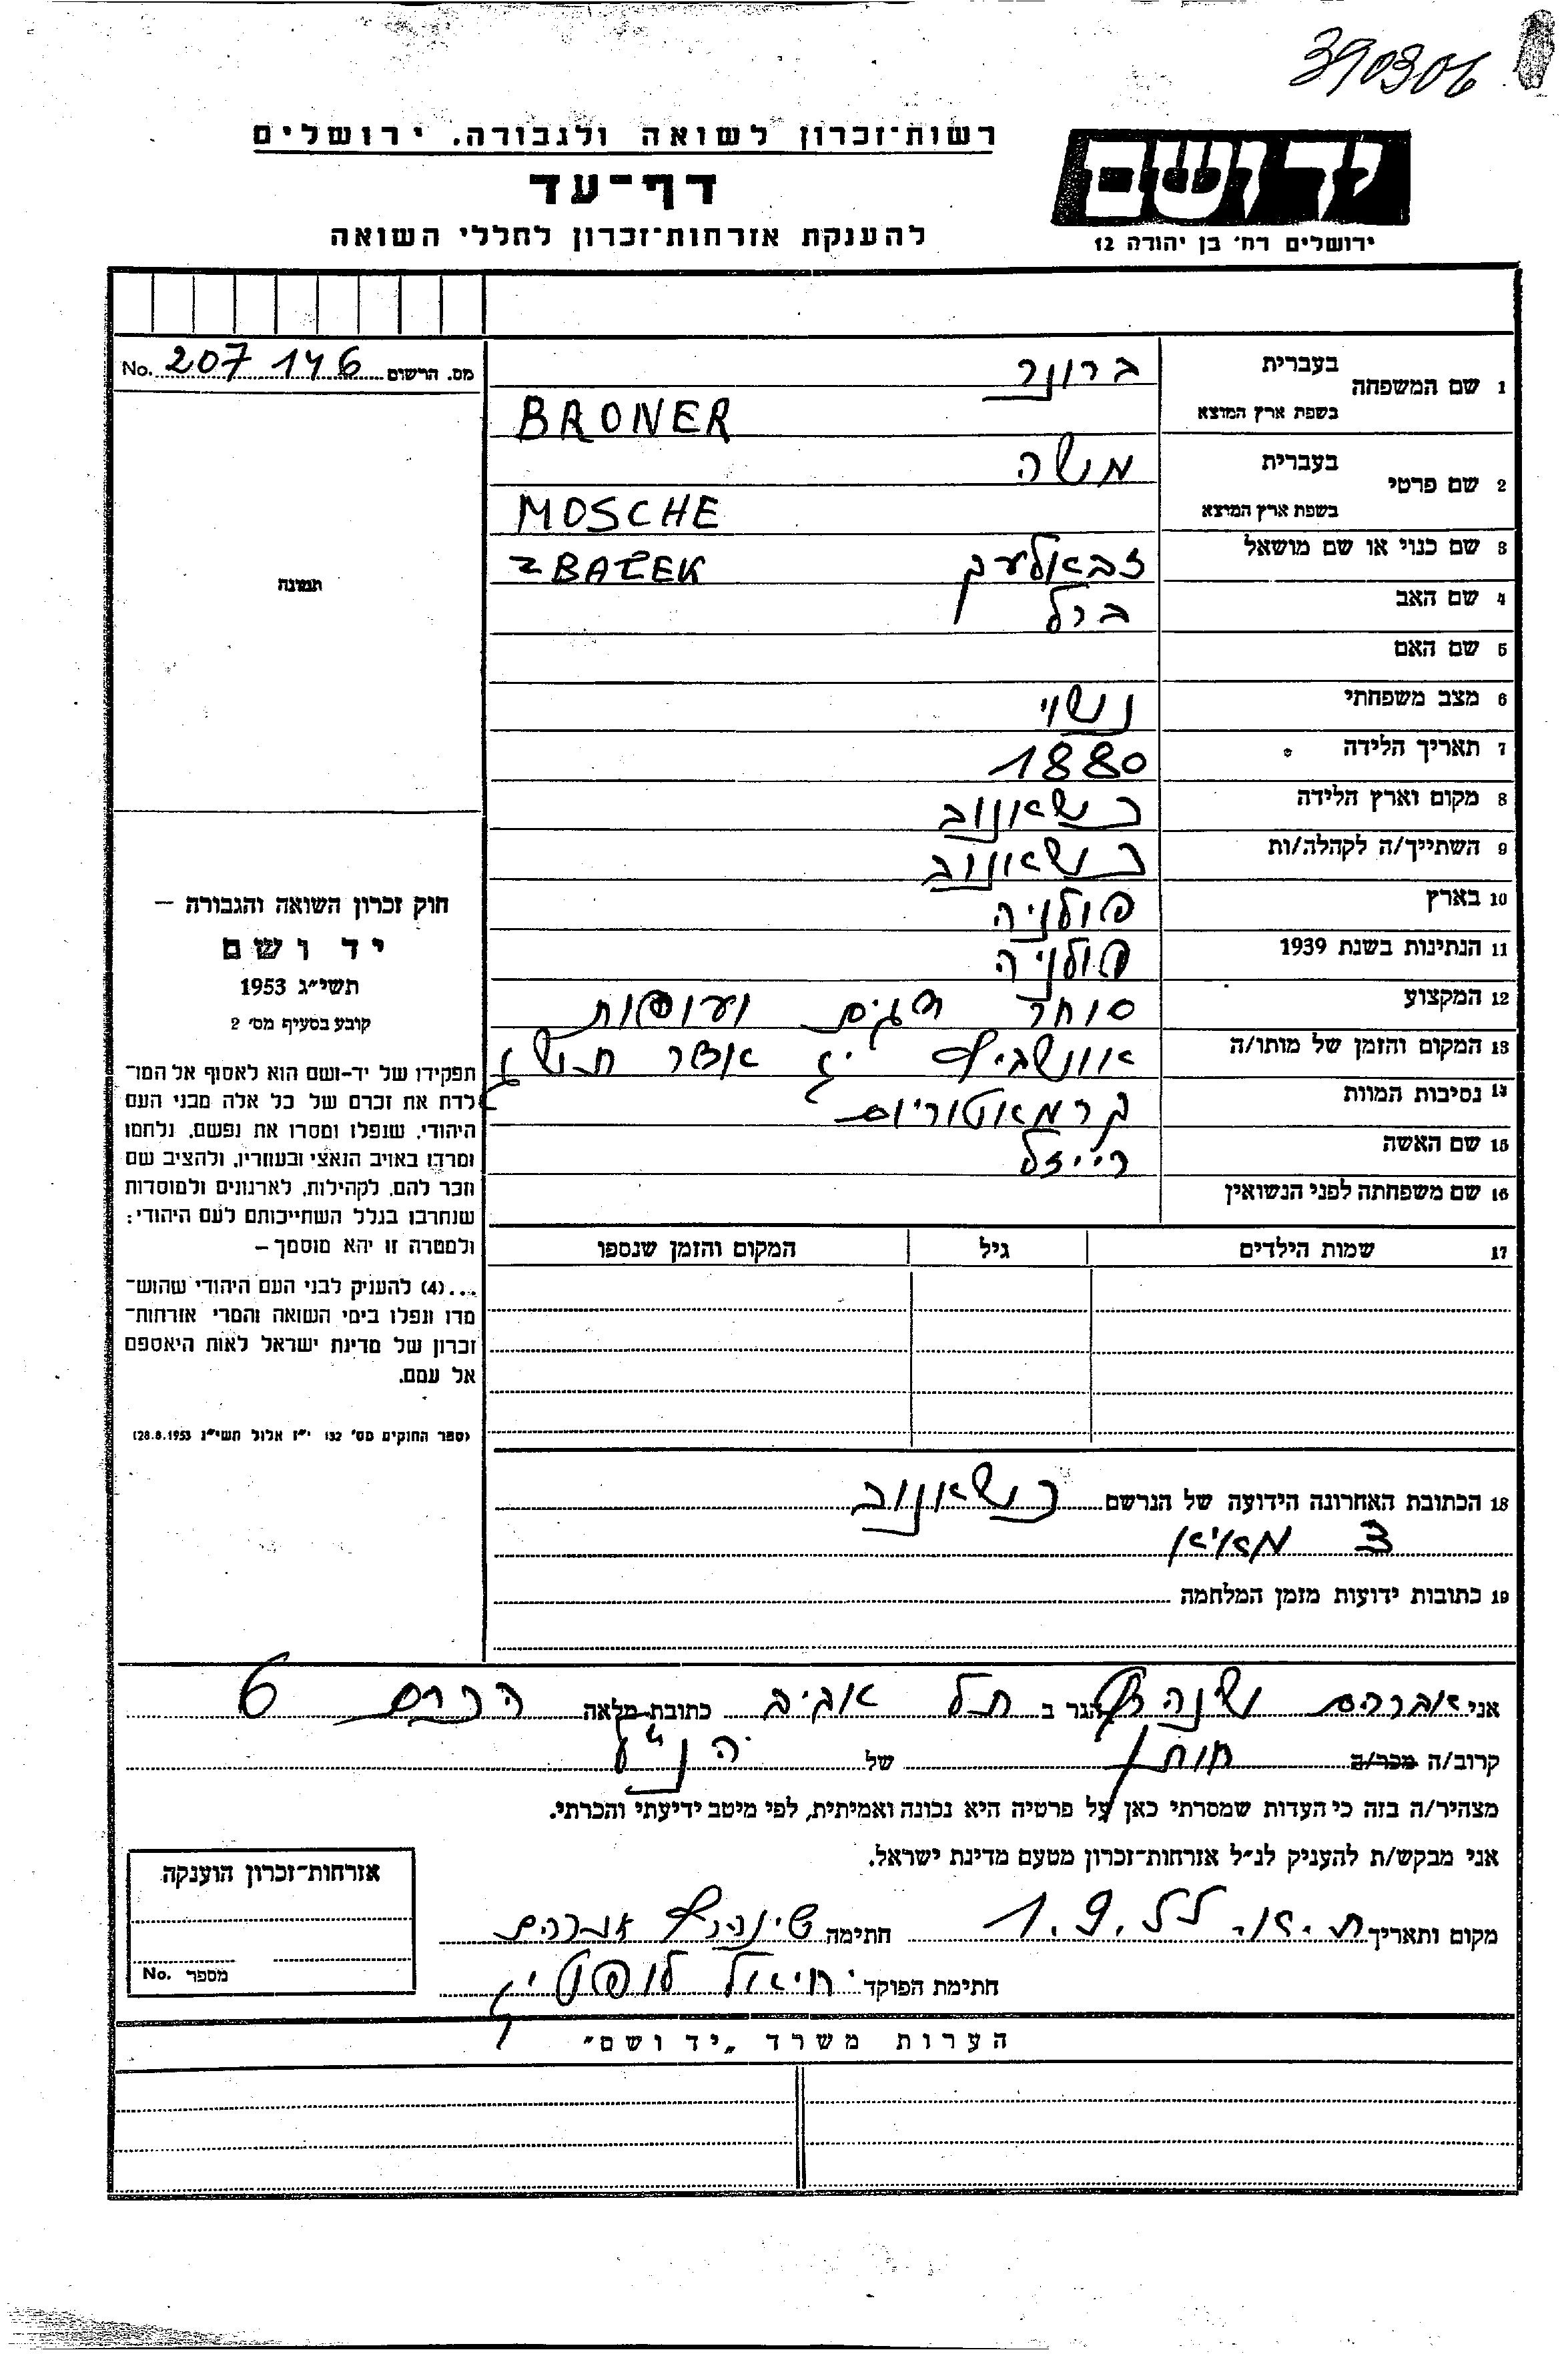 390306
רשות־זכרון לשואה ולגבורה. ירושלים
דף־עד
להענקת אזרחות־זכרון לחללי השואה
יד ושם
ירושלים רח׳ בן יהודה 12
מס. הרשום 207 146 No.
1 שם המשפחה
בעברית ברונר
בשפת ארץ המוצא BRONER
2 שם פרטי
בעברית משה
בשפת ארץ המוצא MOSCHE
3 שם כנוי או שם מושאל זבאלעק ZBAŁEK
4 שם האב ברל
5 שם האם
6 מצב משפחתי נשוי
7 תאריך הלידה 1880
8 מקום וארץ הלידה כשאנוב
9 השתייך/ה לקהלה/ות כשאנוב
10 בארץ פולניה
11 הנתינות בשנת 1939 פולניה
12 המקצוע סוחר דגים ועופות
13 המקום והזמן של מותו/ה אוושביץ יג אדר תש
14 נסיבות המוות קרמאטוריום
15 שם האשה רייזל
16 שם משפחתה לפני הנשואין
17 שמות הילדים גיל המקום והזמן שנספו
תמונה
חוק זכרון השואה והגבורה –
יד ושם
תשי״ג 1953
קובע בסעיף מס׳ 2
תפקידו של יד-ושם הוא לאסוף אל המו־
לדת את זכרם של כל אלה מבני העם
היהודי, שנפלו ומסרו את נפשם, נלחמו
ומרדו באויב הנאצי ובעוזריו, ולהציב שם
וזכר להם, לקהילות, לארגונים ולמוסדות
שנחרבו בגלל השתייכותם לעם היהודי;
ולמטרה זו יהא מוסמך –
...(4) להעניק לבני העם היהודי שהוש־
מדו ונפלו בימי השואה והמרי אזרחות־
זכרון של מדינת ישראל לאות היאספם
אל עמם.
(ספר החוקים מס׳ 132 י״ז אלול תשי״ג 28.8.1953)
18 הכתובת האחרונה הידועה של הנרשם כשאנוב
3 מאיא
19 כתובות ידועות מזמן המלחמה
אני אברהם הגר ב תל אביב כתובת מלאה הכרם 6
קרוב/ה מכר/ה חותן של הנ״ל
מצהיר/ה בזה כי העדות שמסרתי כאן על פרטיה היא נכונה ואמיתית, לפי מיטב ידיעתי והכרתי.
אני מבקש/ת להעניק לנ״ל אזרחות־זכרון מטעם מדינת ישראל.
מקום ותאריך ת.א. 1.9.55 חתימה אברהם
חתימת הפוקד יחיאל
אזרחות־זכרון הוענקה
מספר No.
הערות משרד „יד ושם״